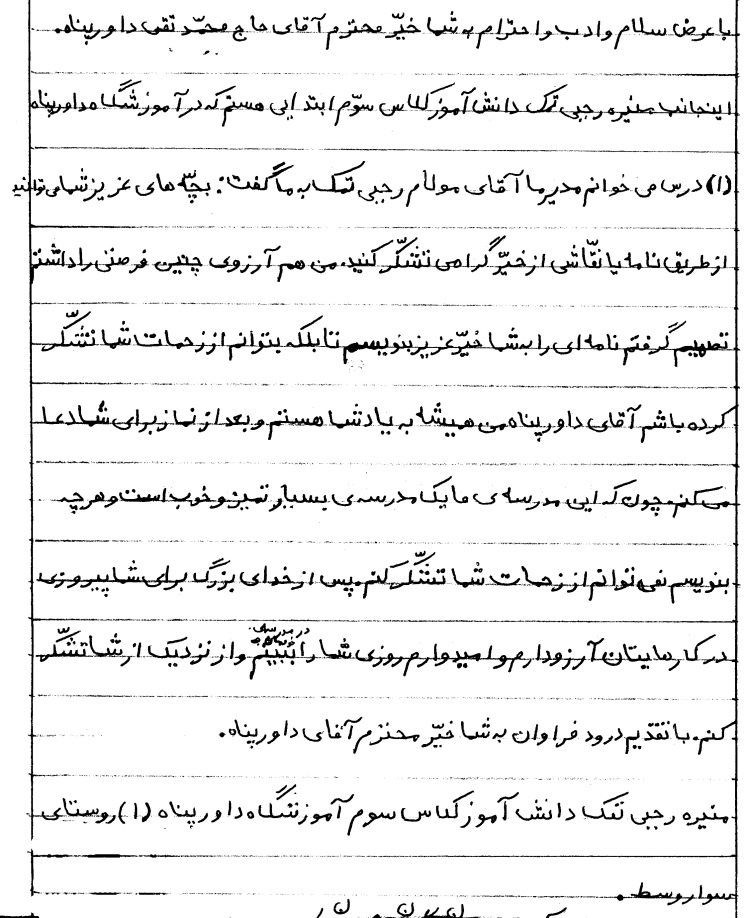 با عرض سلام و ادب و احترام به شما خیّر محترم آقای حاج محمّد تقی داورپناه.
اینجانب منیره رجبی تک دانش آموز کلاس سوّم ابتدایی هستم که در آموزشگاه داورپناه
(۱) درس می خوانم مدیر ما آقای مولام رجبی تک به ما گفت: بچّه های عزیز شما می توانید
از طریق نامه یا نقّاشی از خیّر گرامی تشکّر کنید. من هم آرزوی چنین فرصتی را داشتم
تصمیم گرفتم نامه ای را به شما خیّر عزیز بنویسم تا بلکه بتوانم از زحمات شما تشکّر
کرده باشم آقای داورپناه من همیشه به یاد شما هستم و بعد از نماز برای شما دعا
می کنم. چون که این مدرسه ی ما یک مدرسه ی بسیار تمیز و خوب است و هر چه
بنویسم نمی توانم از زحمات شما تشکّر کنم. پس از خدای بزرگ برای شما پیروزی
در کارهایتان آرزو دارم و امیدوارم روزی شما را در مدرسه ی ببینم و از نزدیک از شما تشکّر
کنم. با تقدیم درود فراوان به شما خیّر محترم آقای داورپناه.
منیره رجبی تک دانش آموز کلاس سوم آموزشگاه داورپناه (۱) روستای
سوار وسط.